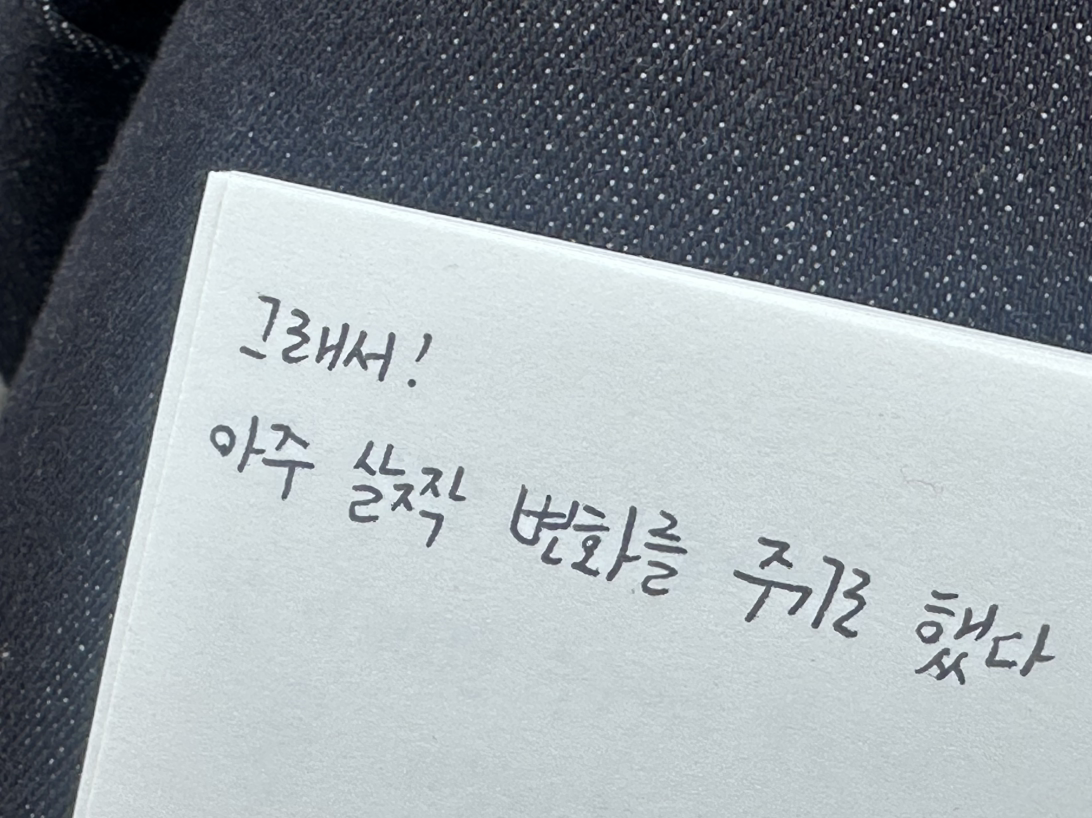 그래서!
아주 살작 변화를 주기로 했다